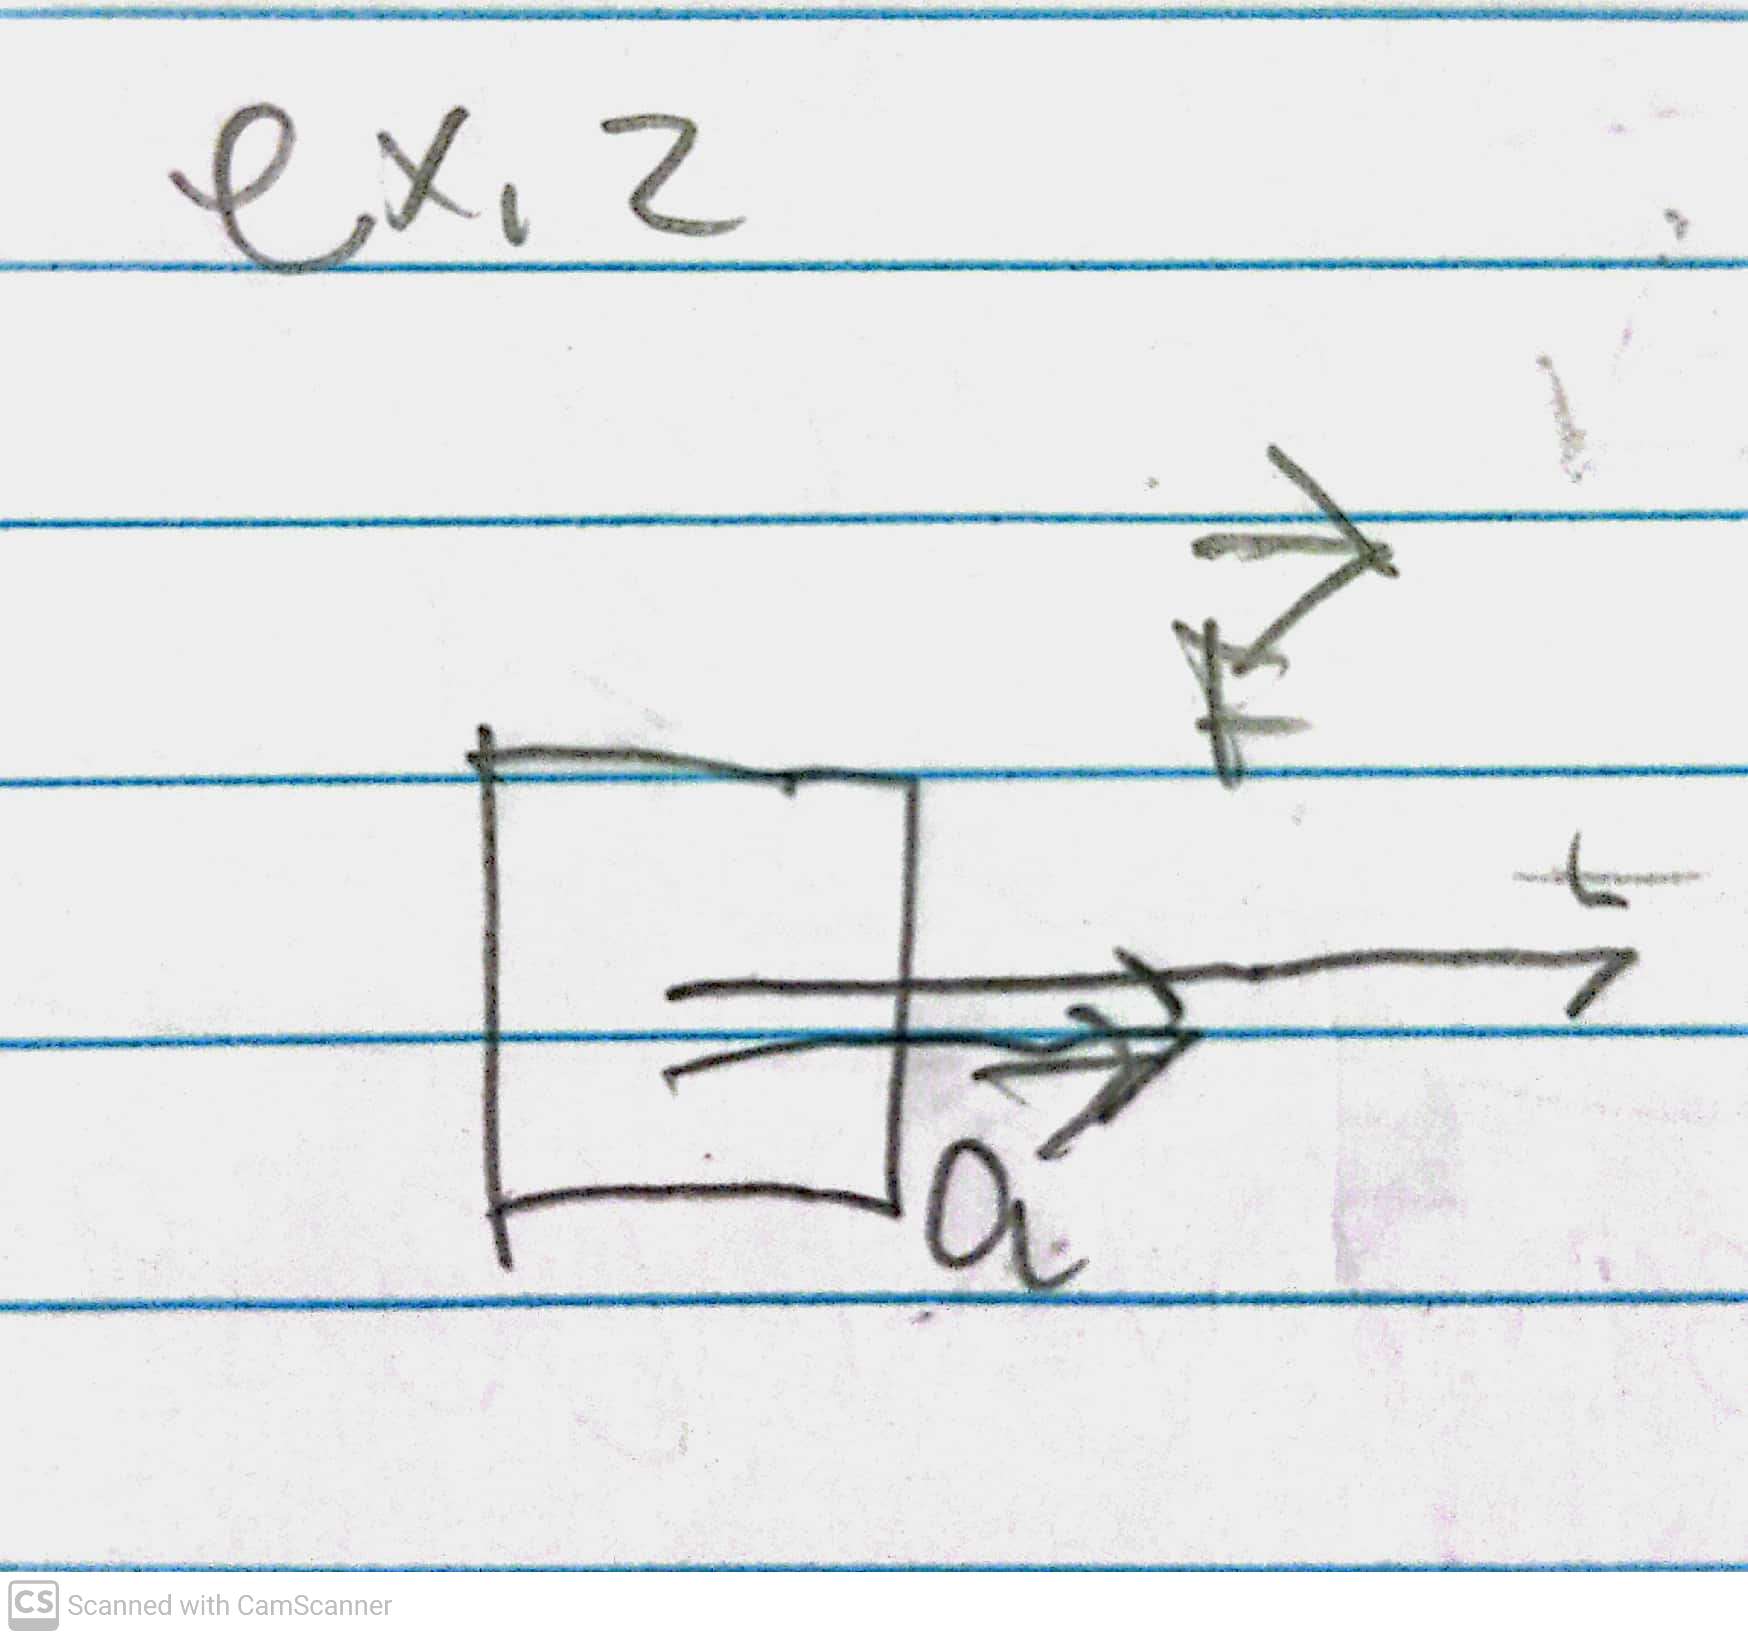 ex. 2
F
a
CS Scanned with CamScanner